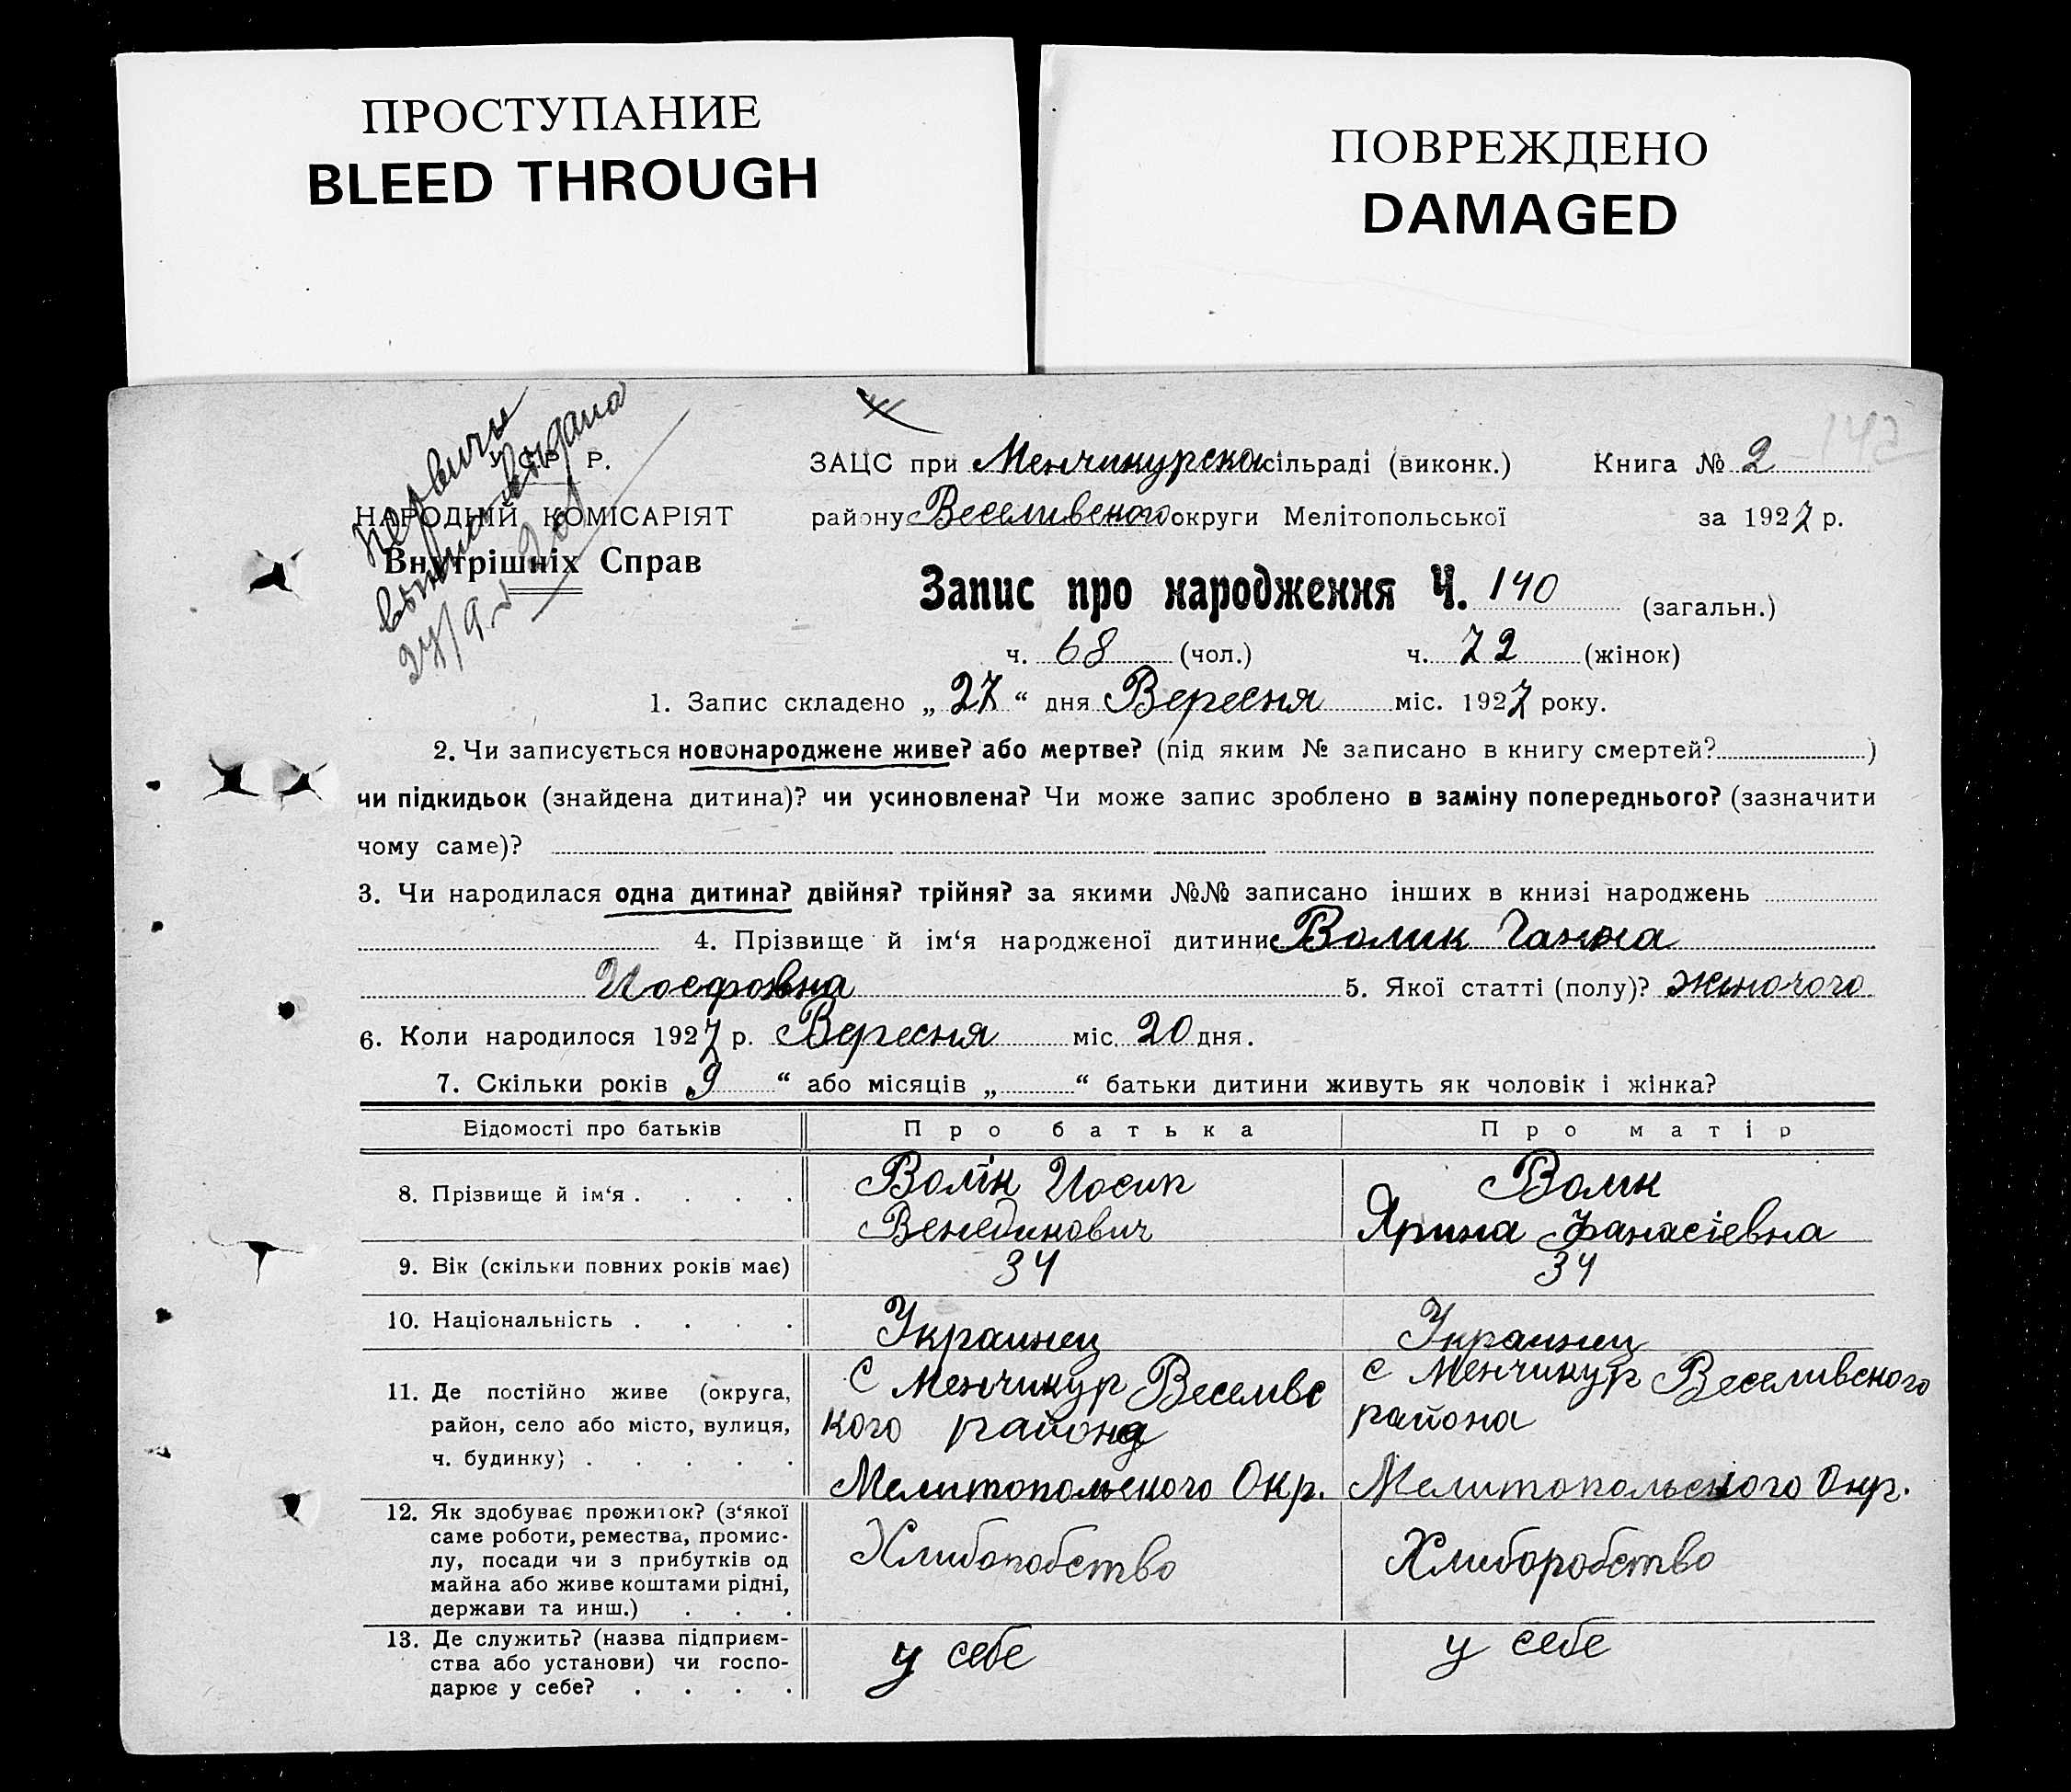 ПРОСТУПАНИЕ
BLEED THROUGH
ПОВРЕЖДЕНО
DAMAGED
142
Первичн
выпис выдана
24/9
У С Р Р.
НАРОДНІЙ КОМІСАРІЯТ
Внутрішніх Справ
ЗАЦС при Менчикурскай сільраді (виконк.) Книга № 2
району Веселивского округи Мелітопольської за 1927 р.
Запис про народження Ч. 140 (загальн.)
ч. 68 (чол.) ч. 72 (жінок)
1. Запис складено „ 27 “ дня Вересня міс. 1927 року.
2. Чи записується новонароджене живе? або мертве? (під яким № записано в книгу смертей? )
чи підкидьок (знайдена дитина)? чи усиновлена? Чи може запис зроблено в заміну попереднього? (зазначити
чому саме)?
3. Чи народилася одна дитина? двійня? трійня? за якими №№ записано інших в книзі народжень
4. Прізвище й ім‘я народженої дитини Волик Ганна
Иосфовна 5. Якої статті (полу)? Жиночого
6. Коли народилося 1927 р. Вересня міс. 20 дня.
7. Скільки років „ 9 “ або місяців „ “ батьки дитини живуть як чоловік і жінка?
Відомості про батьків Про батька Про матір
8. Прізвище й ім‘я . . . . Волік Иосип Волик
Венедикович Ярина Фанасіевна
9. Вік (скільки повних років має) 34 34
10. Національність . . . . Украинец Украинец
11. Де постійно живе (округа, район, село або місто, вулиця, ч. будинку) . . . . .
С Менчикур Веселивс
кого района
Мелитопольского Окр.
с Менчикур Веселивского
района
Мелитопольского Окр.
12. Як здобуває прожиток? (з‘якої
саме роботи, ремества, промис-
лу, посади чи з прибутків од
майна або живе коштами рідні,
держави та инш.) . . .
Хлиборобство Хлиборобство
13. Де служить? (назва підприєм-
ства або установи) чи госпо-
дарює у себе? . . . .
у себе у себе